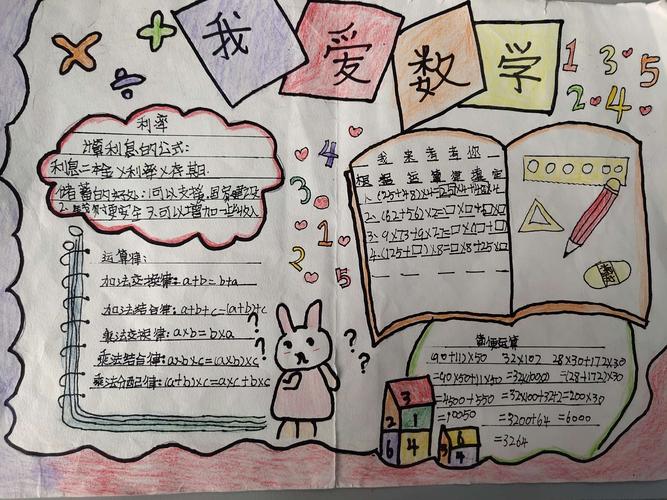 我爱数学
× + ÷
1 3 5
2 4
4
3
1
2 5
利率
计算利息的公式:
利息=本金×利率×存期.
储蓄的好处:可以支援国家建设
运算律:
加法交换律:a+b=b+a
加法结合律:a+b+c=(a+b)+c
乘法交换律:a×b=b×a
乘法结合律:a×b×c=(a×b)×c
乘法分配律:(a+b)×c=a×c+b×c
? ? ? ?
我来考考你
根据运算律填空
1.(25+48)×4=25×4+48×4
2.(62+56)×2=□×□+□×□
3.9×73+9×27=□×(□+□)
4.(125+□)×8=□×8+25×□
简便运算
(90+11)×50 32×102 28×30+172×30
=90×50+11×50 =32×(100+2) =(28+172)×30
=4500+550 =32×100+32×2 =200×30
=10050 =3200+64 =6000
=3264
3
2 1
6 4
6
3 4